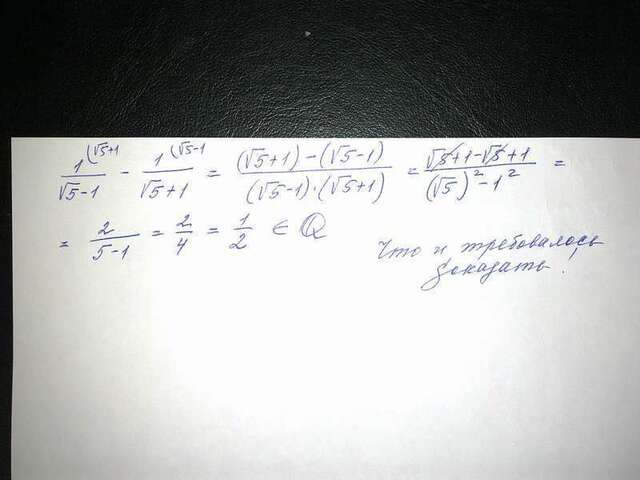 1^(√5+1 / √5-1 - 1^(√5-1 / √5+1 = (√5+1)-(√5-1) / (√5-1)·(√5+1) = √5+1-√5+1 / (√5)²-1² =
= 2 / 5-1 = 2/4 = 1/2 ∈ ℚ
Что и требовалось
доказать.